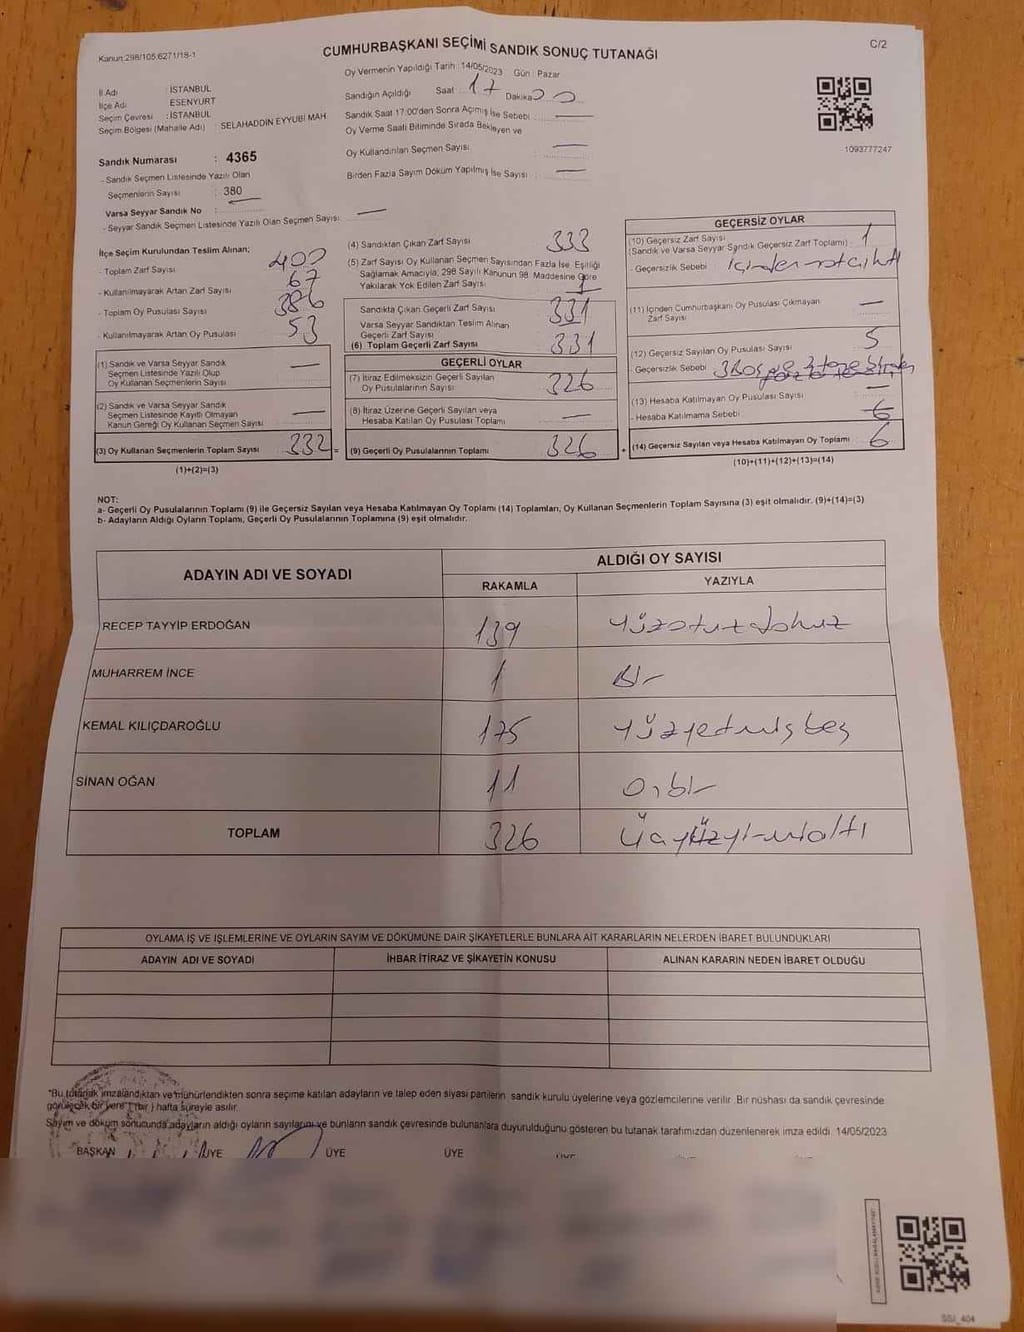 Kanun:298/105.6271/18-1
CUMHURBAŞKANI SEÇİMİ SANDIK SONUÇ TUTANAĞI
C/2
Oy Vermenin Yapıldığı Tarih : 14/05/2023 Gün : Pazar
İl Adı : İSTANBUL
İlçe Adı : ESENYURT
Seçim Çevresi : İSTANBUL
Seçim Bölgesi (Mahalle Adı) : SELAHADDİN EYYUBİ MAH
Sandığın Açıldığı Saat 17 Dakika
Sandık Saat 17:00'den Sonra Açımış İse Sebebi :
Oy Verme Saati Bitiminde Sırada Bekleyen ve
Oy Kullandırılan Seçmen Sayısı :
Birden Fazla Sayım Döküm Yapılmış İse Sayısı :
1093777247
Sandık Numarası : 4365
- Sandık Seçmen Listesinde Yazılı Olan
Seçmenlerin Sayısı : 380
Varsa Seyyar Sandık No :
- Seyyar Sandık Seçmen Listesinde Yazılı Olan Seçmen Sayısı :
İlçe Seçim Kurulundan Teslim Alınan;
- Toplam Zarf Sayısı 400
- Kullanılmayarak Artan Zarf Sayısı 67
- Toplam Oy Pusulası Sayısı 386
- Kullanılmayarak Artan Oy Pusulası 53
(1) Sandık ve Varsa Seyyar Sandık
Seçmen Listesinde Yazılı Olup
Oy Kullanan Seçmenlerin Sayısı
(2) Sandık ve Varsa Seyyar Sandık
Seçmen Listesinde Kayıtlı Olmayan
Kanun Gereği Oy Kullanan Seçmen Sayısı
(3) Oy Kullanan Seçmenlerin Toplam Sayısı 332 =
(1)+(2)=(3)
(4) Sandıktan Çıkan Zarf Sayısı 333
(5) Zarf Sayısı Oy Kullanan Seçmen Sayısından Fazla İse, Eşitliği
Sağlamak Amacıyla, 298 Sayılı Kanunun 98. Maddesine Göre
Yakılarak Yok Edilen Zarf Sayısı 1
Sandıkta Çıkan Geçerli Zarf Sayısı 331
Varsa Seyyar Sandıktan Teslim Alınan
Geçerli Zarf Sayısı
(6) Toplam Geçerli Zarf Sayısı 331
GEÇERLİ OYLAR
(7) İtiraz Edilmeksizin Geçerli Sayılan
Oy Pusulalarının Sayısı 326
(8) İtiraz Üzerine Geçerli Sayılan veya
Hesaba Katılan Oy Pusulası Toplamı
(9) Geçerli Oy Pusulalarının Toplamı 326 +
GEÇERSİZ OYLAR
(10) Geçersiz Zarf Sayısı
(Sandık ve Varsa Seyyar Sandık Geçersiz Zarf Toplamı) 1
- Geçersizlik Sebebi
(11) İçinden Cumhurbaşkanı Oy Pusulası Çıkmayan
Zarf Sayısı
(12) Geçersiz Sayılan Oy Pusulası Sayısı 5
- Geçersizlik Sebebi
(13) Hesaba Katılmayan Oy Pusulası Sayısı
- Hesaba Katılmama Sebebi
(14) Geçersiz Sayılan veya Hesaba Katılmayan Oy Toplamı 6
(10)+(11)+(12)+(13)=(14)
NOT:
a- Geçerli Oy Pusulalarının Toplamı (9) ile Geçersiz Sayılan veya Hesaba Katılmayan Oy Toplamı (14) Toplamları, Oy Kullanan Seçmenlerin Toplam Sayısına (3) eşit olmalıdır. (9)+(14)=(3)
b- Adayların Aldığı Oyların Toplamı, Geçerli Oy Pusulalarının Toplamına (9) eşit olmalıdır.
ADAYIN ADI VE SOYADI
ALDIĞI OY SAYISI
RAKAMLA YAZIYLA
RECEP TAYYİP ERDOĞAN 139 yüzotuzdokuz
MUHARREM İNCE 1 Bir
KEMAL KILIÇDAROĞLU 175 yüzyetmişbeş
SİNAN OĞAN 11 Onbir
TOPLAM 326 Üçyüzyirmialtı
OYLAMA İŞ VE İŞLEMLERİNE VE OYLARIN SAYIM VE DÖKÜMÜNE DAİR ŞİKAYETLERLE BUNLARA AİT KARARLARIN NELERDEN İBARET BULUNDUKLARI
ADAYIN ADI VE SOYADI İHBAR İTİRAZ VE ŞİKAYETİN KONUSU ALINAN KARARIN NEDEN İBARET OLDUĞU
"Bu tutanak imzalandıktan ve mühürlendikten sonra seçime katılan adayların ve talep eden siyasi partilerin sandık kurulu üyelerine veya gözlemcilerine verilir. Bir nüshası da sandık çevresinde
görülecek bir yere 1 (bir ) hafta süreyle asılır.
Sayım ve döküm sonucunda adayların aldığı oyların sayılarını ve bunların sandık çevresinde bulunanlara duyurulduğunu gösteren bu tutanak tarafımızdan düzenlenerek imza edildi. 14/05/2023
BAŞKAN ÜYE ÜYE ÜYE
SSJ_404